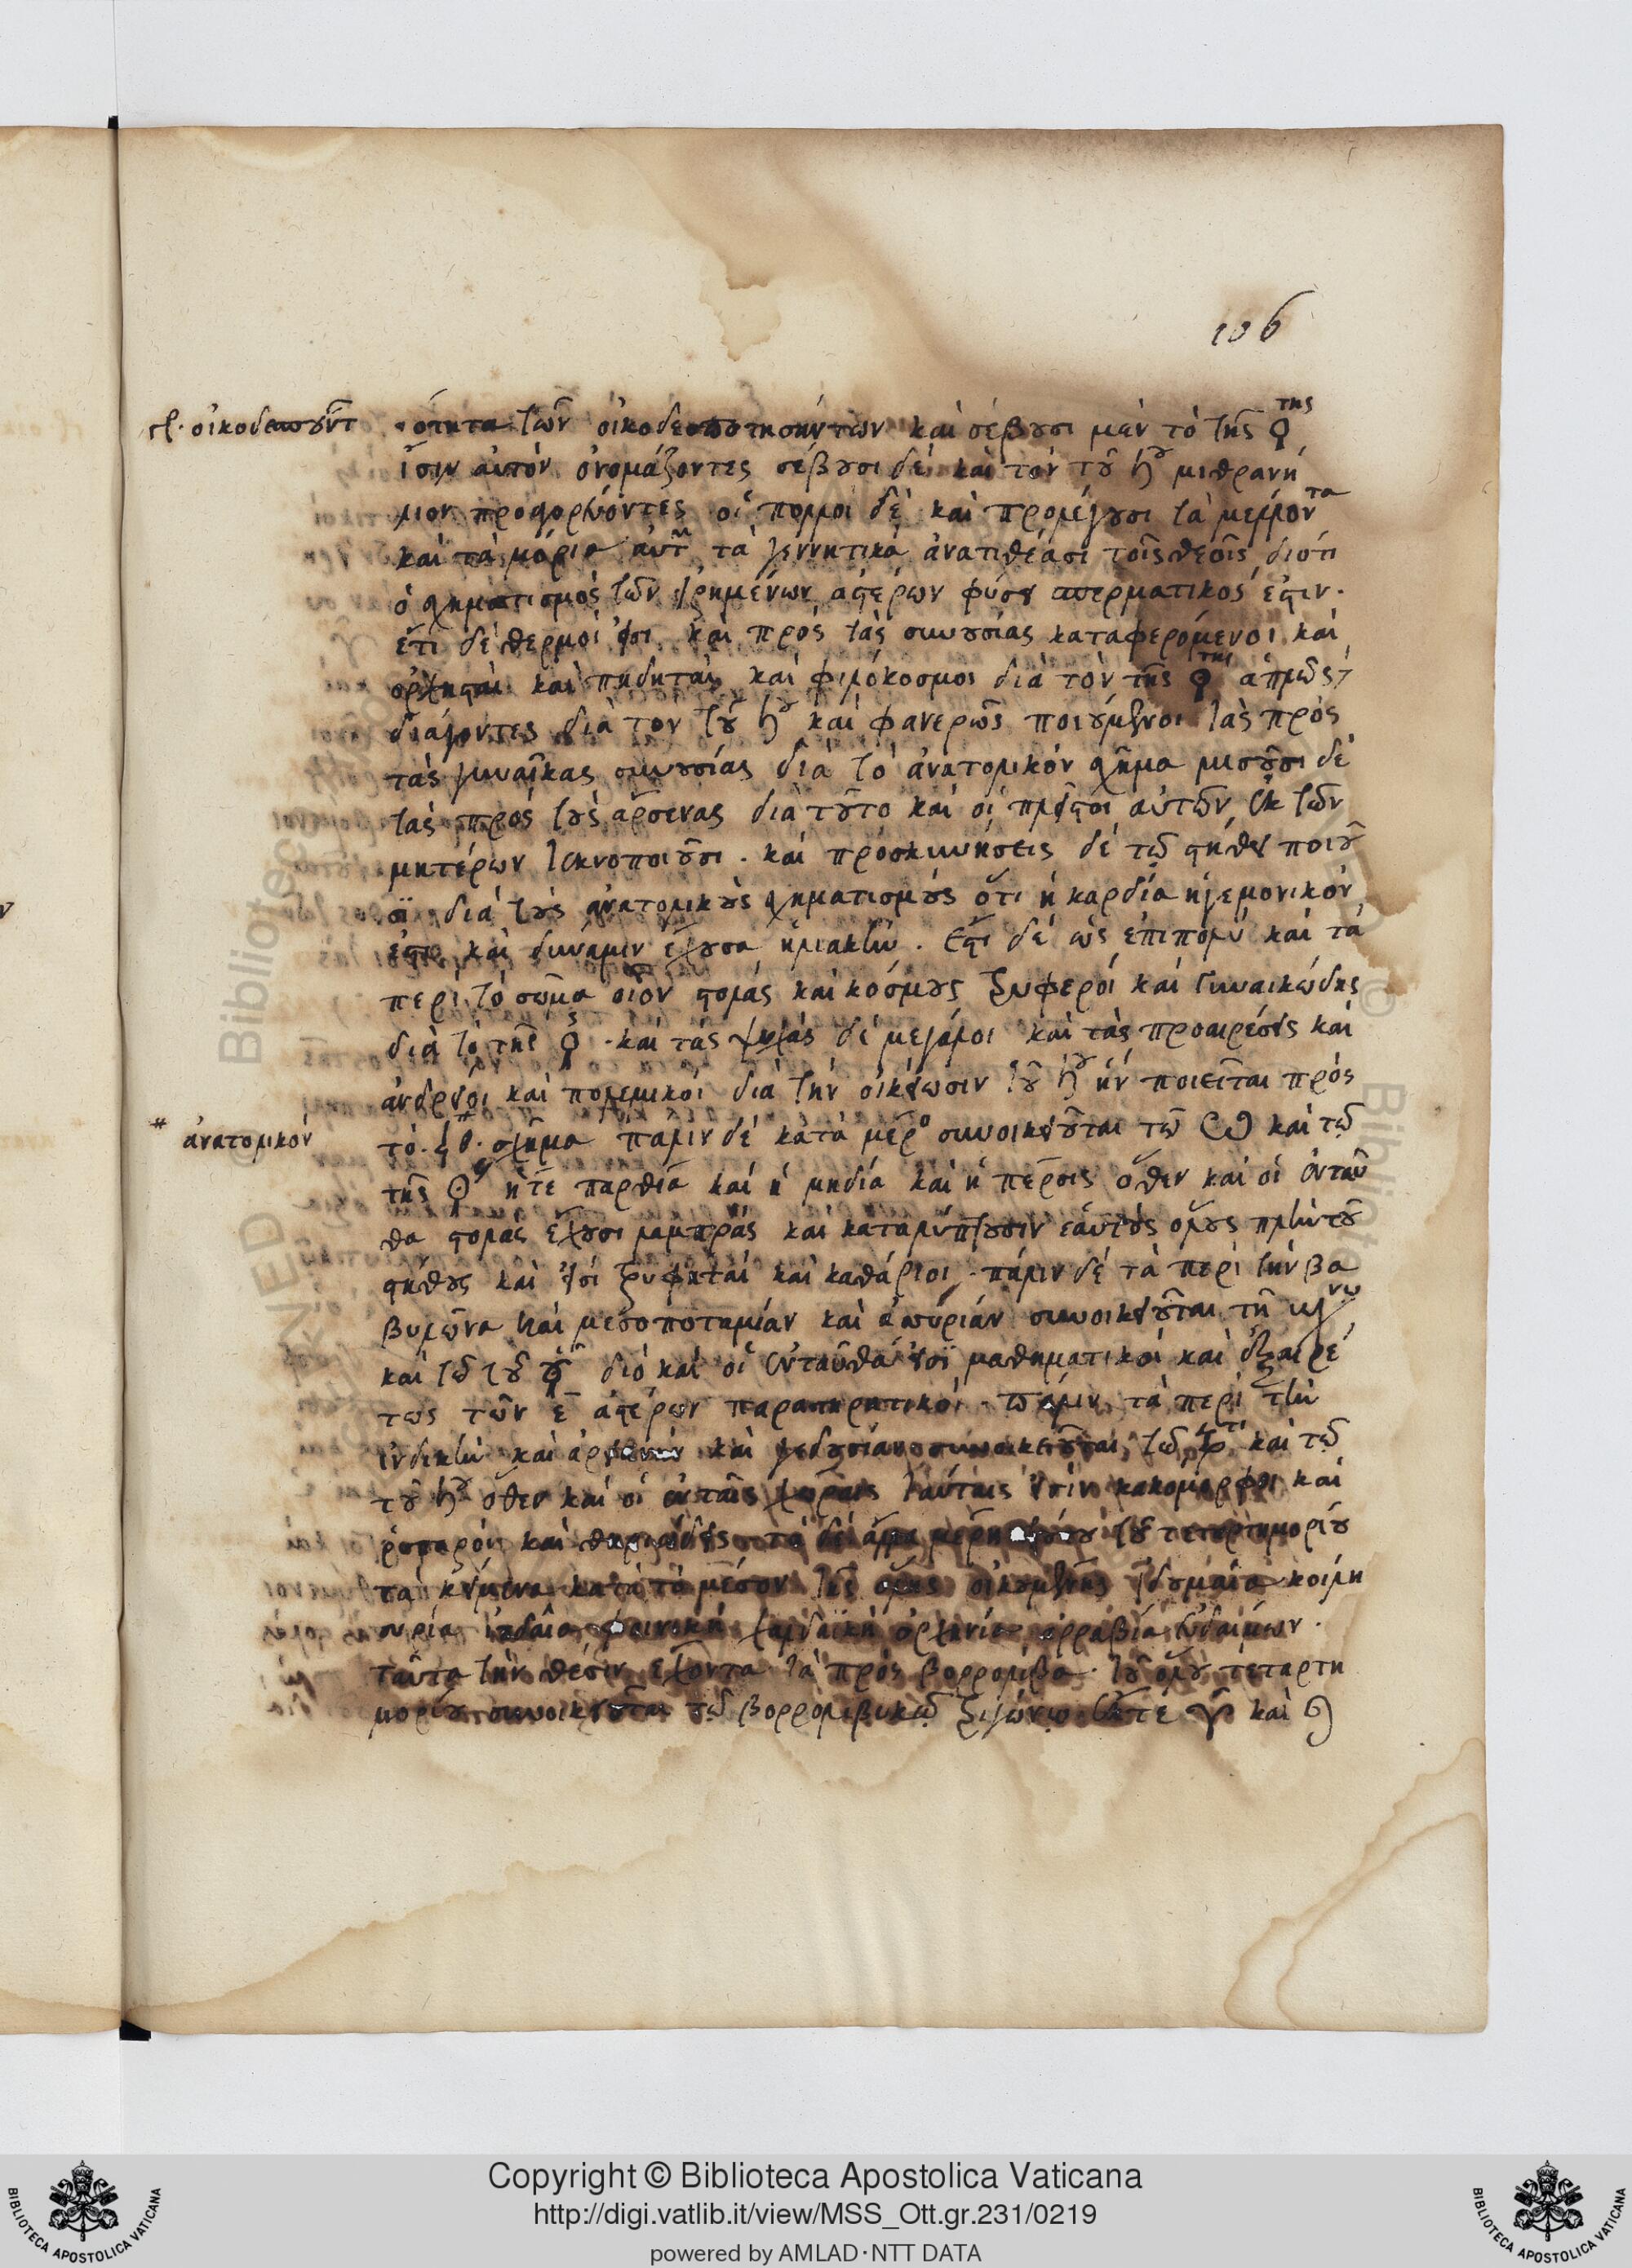 106
γρ. οἰκοδεσπούντ
ότητα τῶν οἰκοδεσποτησάντων καὶ σέβουσι μὲν τὸ τῆς ♀της
ἶσιν αὐτὸν ὀνομάζοντες σέβουσι δὲ καὶ τὸν τοῦ ♄ου μιθρανή
λιον προσαγορεύοντες οἱ πολλοὶ δὲ καὶ προλέγουσι τὰ μέλλοντα
καὶ τὰ μόρια αὐτῶν τὰ γεννητικὰ ἀνατιθέασι τοῖς θεοῖς διότι
ὁ σχηματισμὸς τῶν εἰρημένων ἀστέρων φύσει σπερματικός ἐστιν.
ἔτι δὲ θερμοί εἰσι καὶ πρὸς τὰς συνουσίας καταφερόμενοι καὶ
ὀρχησταὶ καὶ πηδηταὶ καὶ φιλόκοσμοι διὰ τὸν τῆς ♀της ἁπλῶς
διάγοντες διὰ τον τοῦ ♄ου καὶ φανερῶς ποιούμενοι τὰς πρὸς
τὰς γυναῖκας συνουσίας διὰ τὸ ἀνατολικὸν σχῆμα μισοῦσι δὲ
τὰς πρὸς τοὺς ἄρσενας διὰ τοῦτο καὶ οἱ πλεῖστοι αὐτῶν ἐκ τῶν
μητέρων τεκνοποιοῦσι. καὶ προσκυνήσεις δὲ τῷ στήθει ποιοῦ
σι διὰ τοὺς ἀνατολικοὺς σχηματισμοὺς ὅτι ἡ καρδία ἡγεμονικόν
ἐστι καὶ δύναμιν ἔχουσα ἡλιακὴν. ἔστι δὲ ὡς ἐπιπολὺ καὶ τὰ
περὶ τὸ σῶμα οἷον στολὰς καὶ κόσμους τρυφεροὶ καὶ γυναικώδεις
διὰ τὸ τῆς ♀ς. καὶ τὰς ψυχὰς δὲ μεγάλοι καὶ τὰς προαιρέσεις καὶ
ἀνδρεῖοι καὶ πολεμικοί διὰ τὴν οἰκείωσιν τοῦ ♄ου ἣν ποιεῖται πρὸς
* ἀνατολικὸν
σχῆμα πάλιν δὲ κατὰ μέρο συνοικειοῦται τῷ ♉ καὶ τῷ
τῆς ♀ ἥτε παρθία καὶ ἡ μηδία καὶ ἡ πέρσις ὅθεν καὶ οἱ ἐνταῦ
θα στολὰς ἔχουσι λαμπρὰς καὶ κατακρύπτουσιν ἑαυτοὺς ὅλους πλὴν τοῦ
στήθους καὶ εἰσὶ τρυφηταὶ καὶ καθάριοι. πάλιν δὲ τὰ περὶ τὴν βα
βυλῶνα καὶ μεσοποταμίαν καὶ ἀσυρίαν συνοικειοῦται τῇ
καὶ τῷ τοῦ ☿ διὸ καὶ οἱ ἐνταῦθα εἰσι μαθηματικοὶ καὶ ἐξαιρέ
τως τῶν ε ἀστέρων παρατηρητικοί. πάλιν τὰ περὶ τὴν
ἰνδικὴν καὶ ἀρειανὴν καὶ γεδρουσίαν συνοικειοῦται τῷ ♑ καὶ τῷ
τοῦ ♄ου ὅθεν καὶ οἱ ἐν ταῖς χώραις ταύταις εἰσὶν κακόμορφοι καὶ
ῥυπαροὶ καὶ θηριώδεις τὰ δὲ ἄλλα μέρη τοῦ τεταρτημορίου
τὰ κείμενα κατὰ τὸ μέσον τῆς ὅλης οἰκουμένης ἰδουμαία κοίλη
συρία ἰουδαία φοινίκη χαλδαϊκὴ ὀρχηνία ἀρραβία εὐδαίμων.
ταῦτα τὴν θέσιν ἔχοντα τὰ πρὸς βορρολίβα τοῦ ὅλου τεταρτη
μορίου συνοικειοῦται τῷ βορρολιβυκῷ τριγώνῳ τῷ τε ♈ καὶ ♌